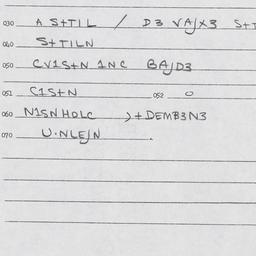 030 A S+TIL / D3 VAJX3 S+T
040 S+TILN
050 CV1S+N 1NC BAJD3
051 C1S+N 052 O
060 N1SNHOLC >+DEMB3N3
070 U·NLEJN .